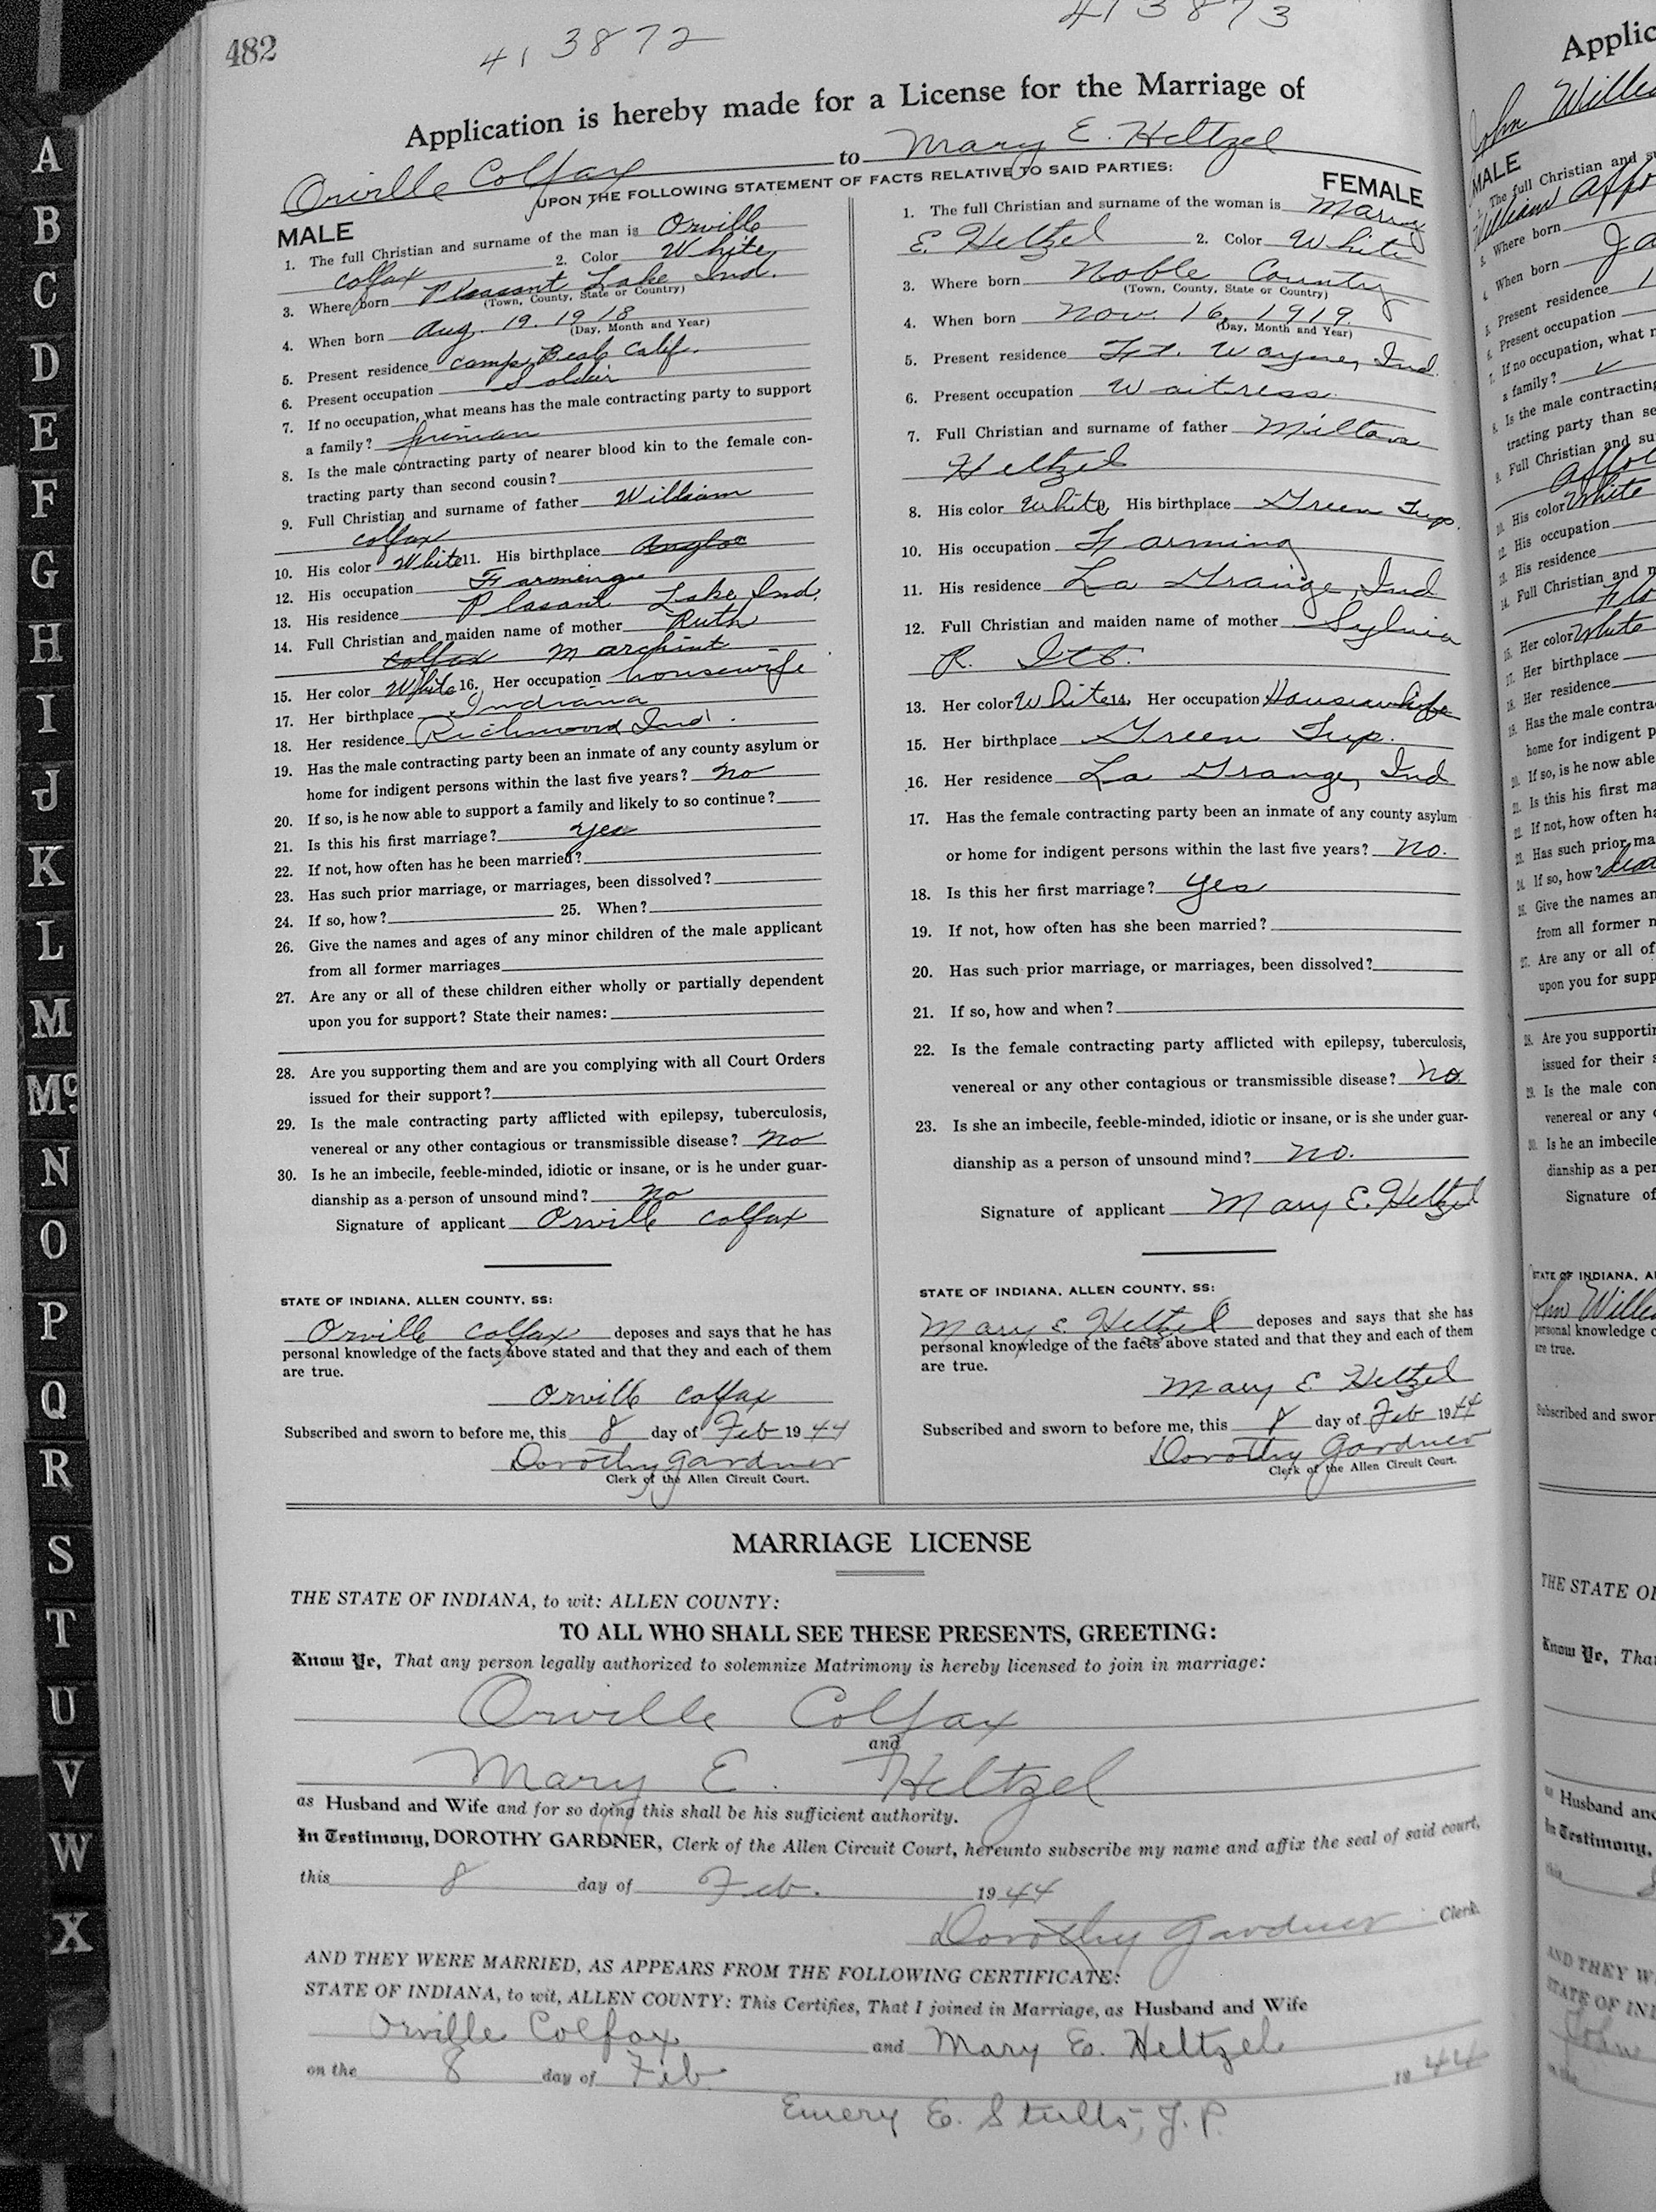 482
413872
413873
Application is hereby made for a License for the Marriage of
Orville Colfax to Mary E. Heltzel
UPON THE FOLLOWING STATEMENT OF FACTS RELATIVE TO SAID PARTIES:
MALE
1. The full Christian and surname of the man is Orville
Colfax 2. Color White
3. Where born Pleasant Lake Ind.
(Town, County, State or Country)
4. When born Aug. 19. 1918
(Day, Month and Year)
5. Present residence Camp Beal Calif.
6. Present occupation Soldier
7. If no occupation, what means has the male contracting party to support
a family?
8. Is the male contracting party of nearer blood kin to the female con-
tracting party than second cousin?
9. Full Christian and surname of father William
Colfax
10. His color White 11. His birthplace Angloa
12. His occupation Farming
13. His residence Plasant Lake Ind.
14. Full Christian and maiden name of mother Ruth
Colfax Marchint
15. Her color White 16. Her occupation housewife
17. Her birthplace Indiana
18. Her residence Richmond Ind.
19. Has the male contracting party been an inmate of any county asylum or
home for indigent persons within the last five years? no
20. If so, is he now able to support a family and likely to so continue?
21. Is this his first marriage? yes
22. If not, how often has he been married?
23. Has such prior marriage, or marriages, been dissolved?
24. If so, how? 25. When?
26. Give the names and ages of any minor children of the male applicant
from all former marriages
27. Are any or all of these children either wholly or partially dependent
upon you for support? State their names:
28. Are you supporting them and are you complying with all Court Orders
issued for their support?
29. Is the male contracting party afflicted with epilepsy, tuberculosis,
venereal or any other contagious or transmissible disease? no
30. Is he an imbecile, feeble-minded, idiotic or insane, or is he under guar-
dianship as a person of unsound mind? no
Signature of applicant Orville Colfax
STATE OF INDIANA, ALLEN COUNTY, SS:
Orville Colfax deposes and says that he has
personal knowledge of the facts above stated and that they and each of them
are true.
Orville Colfax
Subscribed and sworn to before me, this 8 day of Feb 1944
Dorothy Gardner
Clerk of the Allen Circuit Court.
FEMALE
1. The full Christian and surname of the woman is Mary
E. Heltzel 2. Color White
3. Where born Noble County
(Town, County, State or Country)
4. When born Nov. 16, 1919.
(Day, Month and Year)
5. Present residence Ft. Wayne, Ind.
6. Present occupation Waitress.
7. Full Christian and surname of father Milton
Heltzel
8. His color White His birthplace Green Twp.
10. His occupation Farming
11. His residence La Grainge, Ind
12. Full Christian and maiden name of mother Sylvia
R.
13. Her color White 14. Her occupation Housewhife
15. Her birthplace Green Twp.
16. Her residence La Grange, Ind
17. Has the female contracting party been an inmate of any county asylum
or home for indigent persons within the last five years? No.
18. Is this her first marriage? yes
19. If not, how often has she been married?
20. Has such prior marriage, or marriages, been dissolved?
21. If so, how and when?
22. Is the female contracting party afflicted with epilepsy, tuberculosis,
venereal or any other contagious or transmissible disease? no.
23. Is she an imbecile, feeble-minded, idiotic or insane, or is she under guar-
dianship as a person of unsound mind? no.
Signature of applicant Mary E. Heltzel
STATE OF INDIANA, ALLEN COUNTY, SS:
Mary E. Heltzel deposes and says that she has
personal knowledge of the facts above stated and that they and each of them
are true.
Mary E Heltzel
Subscribed and sworn to before me, this 8 day of Feb 1944
Dorothy Gardner
Clerk of the Allen Circuit Court.
MARRIAGE LICENSE
THE STATE OF INDIANA, to wit: ALLEN COUNTY:
TO ALL WHO SHALL SEE THESE PRESENTS, GREETING:
Know Ye, That any person legally authorized to solemnize Matrimony is hereby licensed to join in marriage:
Orville Colfax
and
Mary E. Heltzel
as Husband and Wife and for so doing this shall be his sufficient authority.
In Testimony, DOROTHY GARDNER, Clerk of the Allen Circuit Court, hereunto subscribe my name and affix the seal of said court,
this 8 day of Feb. 1944
Dorothy Gardner Clerk.
AND THEY WERE MARRIED, AS APPEARS FROM THE FOLLOWING CERTIFICATE:
STATE OF INDIANA, to wit, ALLEN COUNTY: This Certifies, That I joined in Marriage, as Husband and Wife
Orville Colfax and Mary E. Heltzel
on the 8 day of Feb 1944
Emery E. Stults, J.P.
A
B
C
D
E
F
G
H
I
J
K
L
M
Mc
N
O
P
Q
R
S
T
U
V
W
X